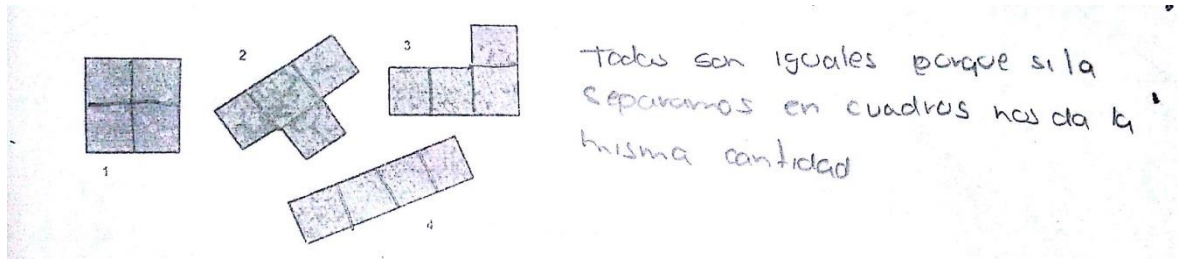 2
3
1
4
Todas son iguales porque si la
separamos en cuadros nos da la
misma cantidad